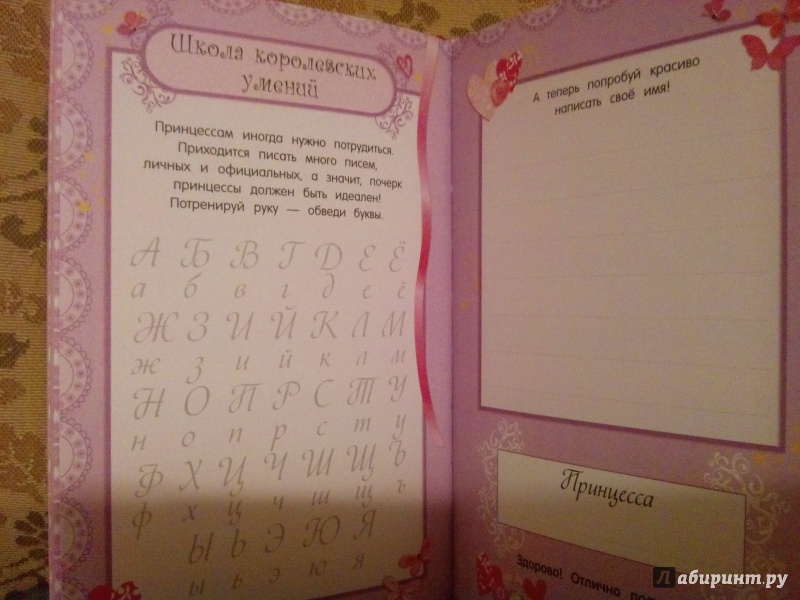 Школа королевских
умений
Принцессам иногда нужно потрудиться.
Приходится писать много писем,
личных и официальных, а значит, почерк
принцессы должен быть идеален!
Потренируй руку — обведи буквы.
А Б В Г Д Е Ё
а б в г д е ё
Ж З И Й К Л М
ж з и й к л м
Н О П Р С Т У
н о п р с т у
Ф Х Ц Ч Ш Щ Ъ
ф х ц ч ш щ ъ
Ы Ь Э Ю Я
ы ь э ю я
А теперь попробуй красиво
написать своё имя!
Принцесса
Здорово! Отлично
Лабиринт.ру